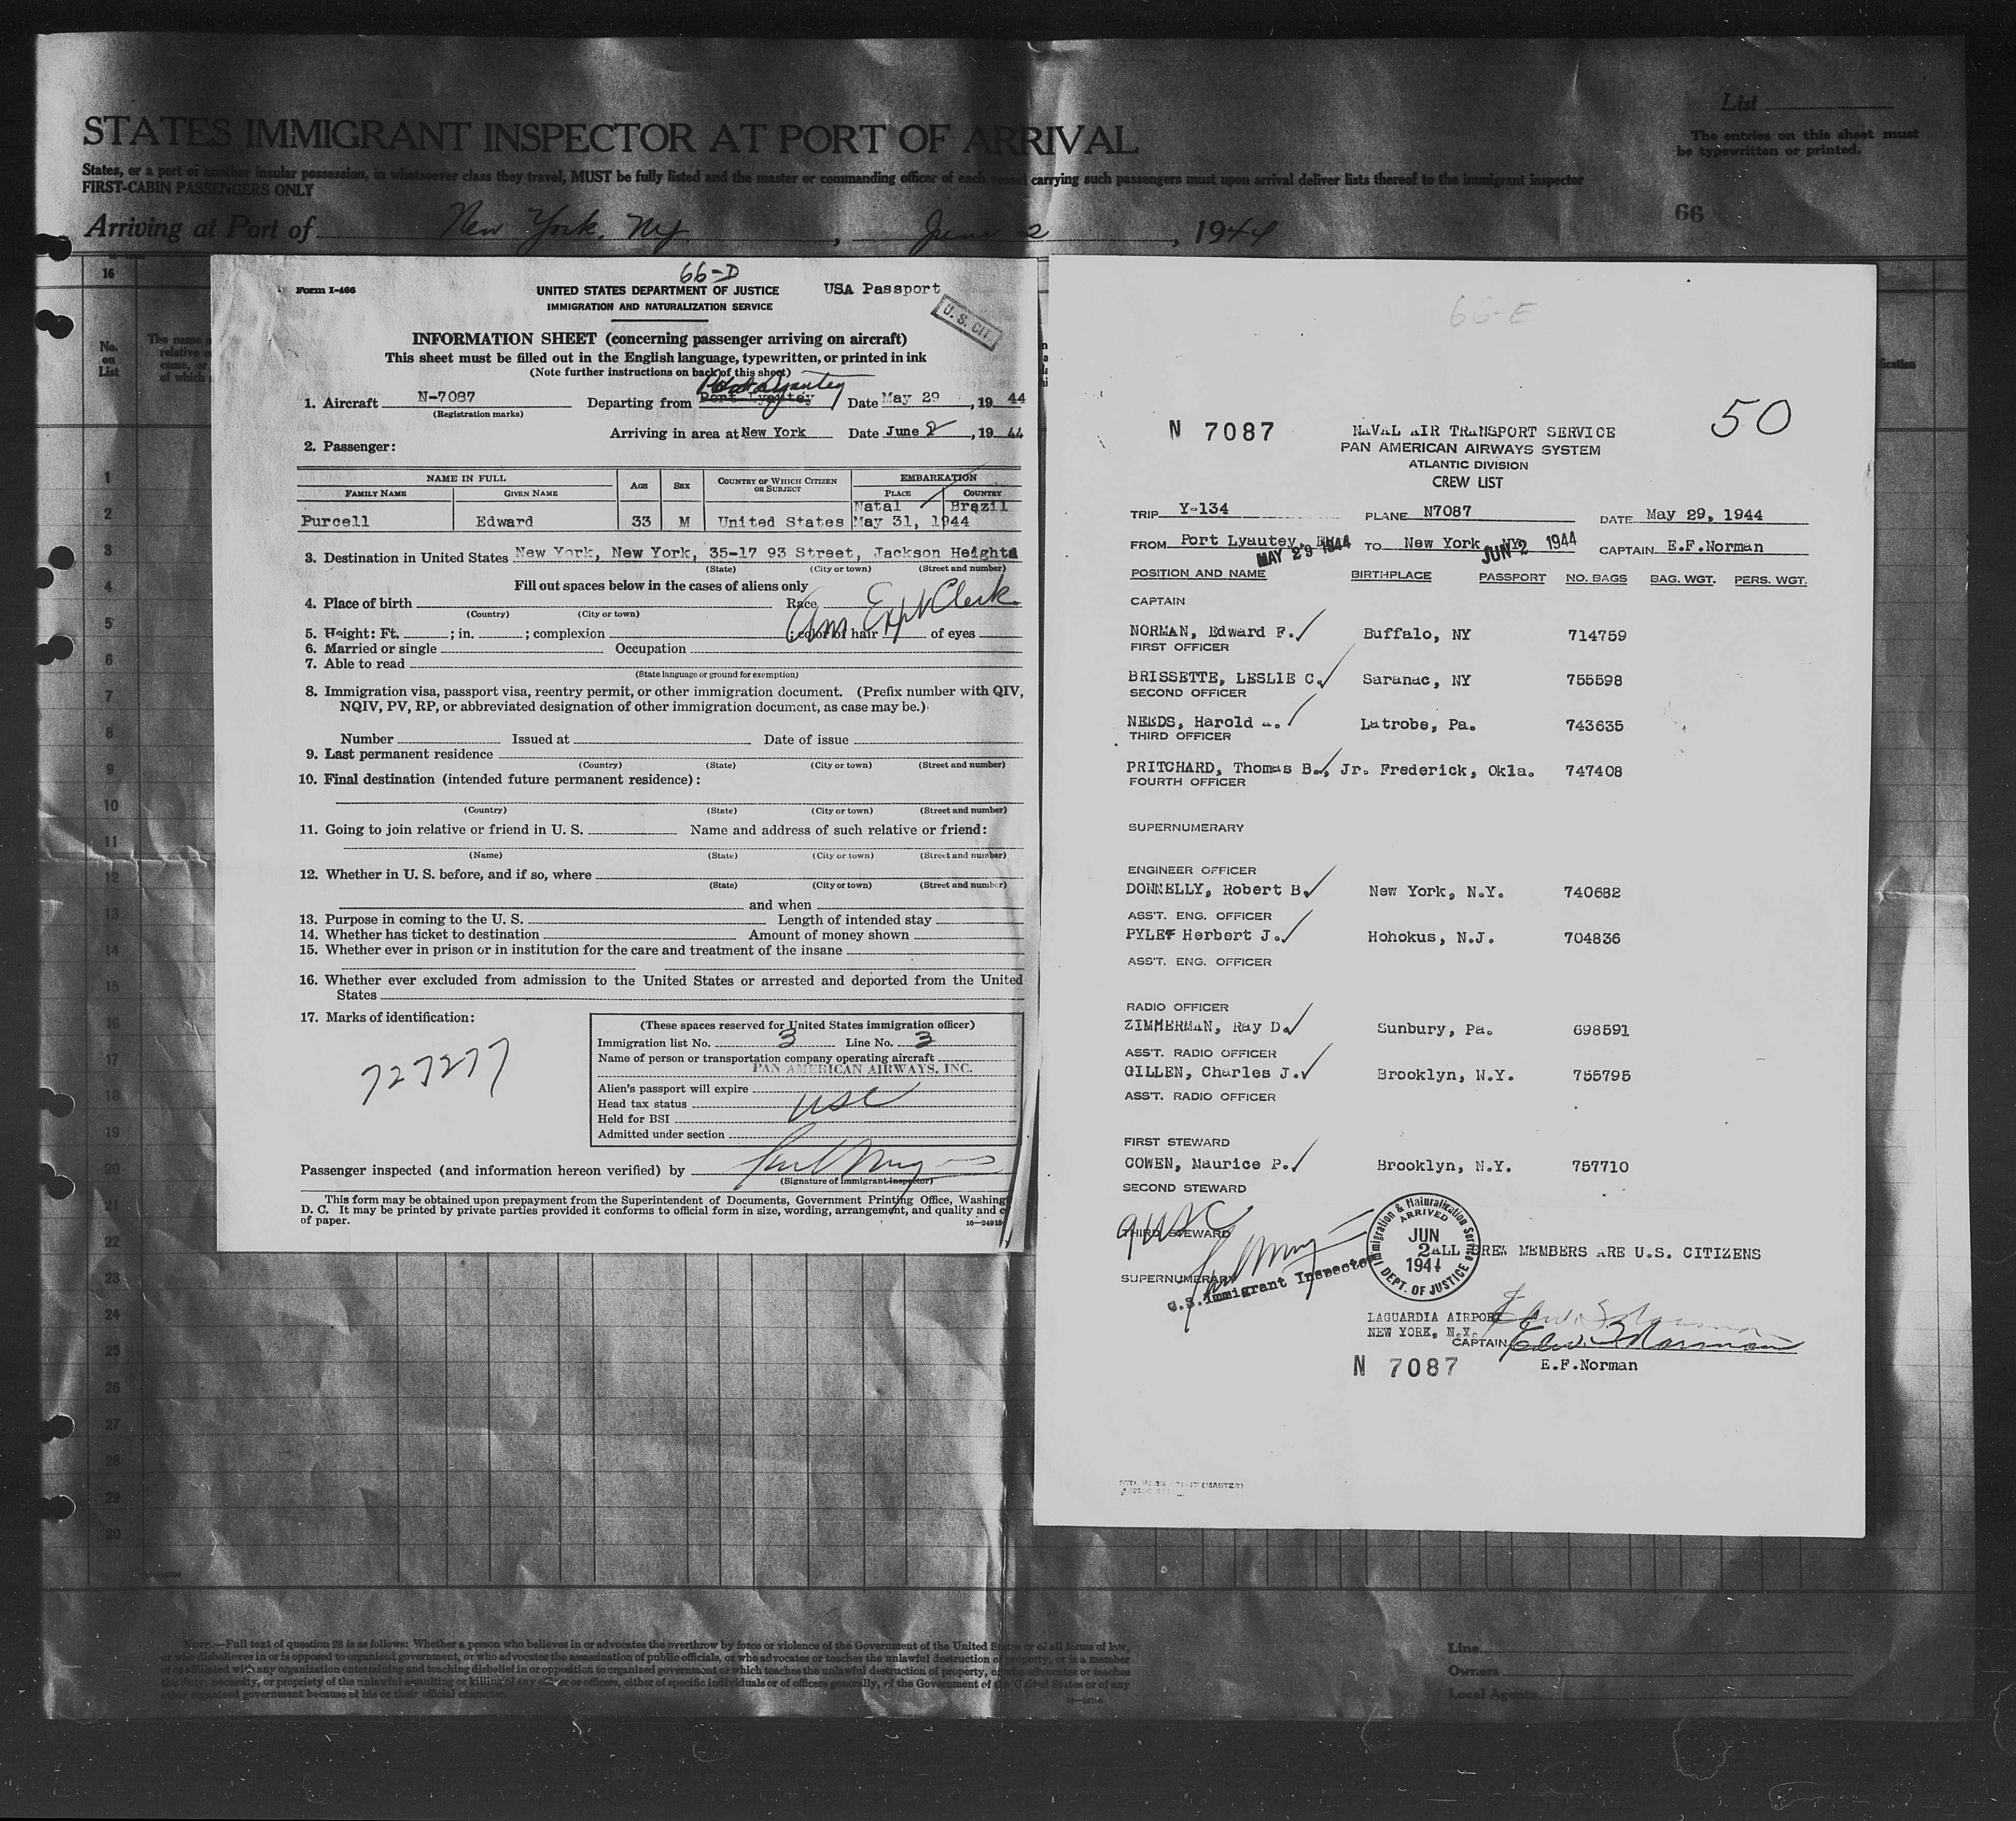 List
STATES IMMIGRANT INSPECTOR AT PORT OF ARRIVAL
The entries on this sheet must
be typewritten or printed.
States, or a port of another insular possession, in whatsoever class they travel, MUST be fully listed and the master or commanding officer of each vessel carrying such passengers must upon arrival deliver lists thereof to the immigrant inspector
FIRST-CABIN PASSENGERS ONLY
66
Arriving at Port of New York, NY, June 2, 1944
16
No. on List
The name
relative o
came, or
of which
1
2
3
4
5
6
7
8
9
10
11
12
13
14
15
16
17
18
19
20
21
22
23
24
25
26
27
28
29
30
66-D
Form I-466
UNITED STATES DEPARTMENT OF JUSTICE
USA Passport
IMMIGRATION AND NATURALIZATION SERVICE
U. S. CIT
INFORMATION SHEET (concerning passenger arriving on aircraft)
This sheet must be filled out in the English language, typewritten, or printed in ink
(Note further instructions on back of this sheet)
Port Lyautey
1. Aircraft N-7087 Departing from Port Lyautey Date May 29, 19 44
(Registration marks)
Arriving in area at New York Date June 2, 19 44
2. Passenger:
NAME IN FULL AGE SEX COUNTRY OF WHICH CITIZEN OR SUBJECT EMBARKATION
FAMILY NAME GIVEN NAME PLACE COUNTRY
Natal Brazil
Purcell Edward 33 M United States May 31, 1944
3. Destination in United States New York, New York, 35-17 93 Street, Jackson Heights
(State) (City or town) (Street and number)
Fill out spaces below in the cases of aliens only
4. Place of birth Race
(Country) (City or town)
Am Expt Clerk
5. Height: Ft. ; in. ; complexion ; color of hair of eyes
6. Married or single Occupation
7. Able to read
(State language or ground for exemption)
8. Immigration visa, passport visa, reentry permit, or other immigration document. (Prefix number with QIV,
NQIV, PV, RP, or abbreviated designation of other immigration document, as case may be.)
Number Issued at Date of issue
9. Last permanent residence
(Country) (State) (City or town) (Street and number)
10. Final destination (intended future permanent residence):
(Country) (State) (City or town) (Street and number)
11. Going to join relative or friend in U. S. Name and address of such relative or friend:
(Name) (State) (City or town) (Street and number)
12. Whether in U. S. before, and if so, where
(State) (City or town) (Street and number)
and when
13. Purpose in coming to the U. S. Length of intended stay
14. Whether has ticket to destination Amount of money shown
15. Whether ever in prison or in institution for the care and treatment of the insane
16. Whether ever excluded from admission to the United States or arrested and deported from the United
States
17. Marks of identification:
727277
(These spaces reserved for United States immigration officer)
Immigration list No. 3 Line No. 3
Name of person or transportation company operating aircraft
PAN AMERICAN AIRWAYS, INC.
Alien's passport will expire
Head tax status USC
Held for BSI
Admitted under section
Passenger inspected (and information hereon verified) by
(Signature of Immigrant Inspector)
This form may be obtained upon prepayment from the Superintendent of Documents, Government Printing Office, Washing
D. C. It may be printed by private parties provided it conforms to official form in size, wording, arrangement, and quality and c
of paper.
16-24915
66-E
50
N 7087
NAVAL AIR TRANSPORT SERVICE
PAN AMERICAN AIRWAYS SYSTEM
ATLANTIC DIVISION
CREW LIST
TRIP Y-134 PLANE N7087 DATE May 29, 1944
FROM Port Lyautey, TO New York, NY CAPTAIN E.F.Norman
MAY 29 1944 JUN 2 1944
POSITION AND NAME BIRTHPLACE PASSPORT NO. BAGS BAG. WGT. PERS. WGT.
CAPTAIN
NORMAN, Edward F. Buffalo, NY 714759
FIRST OFFICER
BRISSETTE, LESLIE C. Saranac, NY 755598
SECOND OFFICER
NEEDS, Harold A. Latrobe, Pa. 743635
THIRD OFFICER
PRITCHARD, Thomas B., Jr. Frederick, Okla. 747408
FOURTH OFFICER
SUPERNUMERARY
ENGINEER OFFICER
DONNELLY, Robert B. New York, N.Y. 740682
ASS'T. ENG. OFFICER
PYLE, Herbert J. Hohokus, N.J. 704836
ASS'T. ENG. OFFICER
RADIO OFFICER
ZIMMERMAN, Ray D. Sunbury, Pa. 698591
ASS'T. RADIO OFFICER
GILLEN, Charles J. Brooklyn, N.Y. 755795
ASS'T. RADIO OFFICER
FIRST STEWARD
COWEN, Maurice P. Brooklyn, N.Y. 757710
SECOND STEWARD
9 USC
THIRD STEWARD
Immigration & Naturalization Service
ARRIVED
JUN
2
1944
DEPT. OF JUSTICE
ALL CREW MEMBERS ARE U.S. CITIZENS
SUPERNUMERARY
U.S. Immigrant Inspector
LAGUARDIA AIRPORT
NEW YORK, N.Y.
Edw. F. Norman
CAPTAIN Edw. F. Norman
N 7087
E.F.Norman
NOTE.—Full text of question 28 is as follows: Whether a person who believes in or advocates the overthrow by force or violence of the Government of the United States or of all forms of law,
or who disbelieves in or is opposed to organized government, or who advocates the assassination of public officials, or who advocates or teaches the unlawful destruction of property, or is a member
of or affiliated with any organization entertaining and teaching disbelief in or opposition to organized government or which teaches the unlawful destruction of property, or who advocates or teaches
the duty, necessity, or propriety of the unlawful assaulting or killing of any officer or officers, either of specific individuals or of officers generally, of the Government of the United States or of any
other organized government because of his or their official character.
Line
Owners
Local Agents